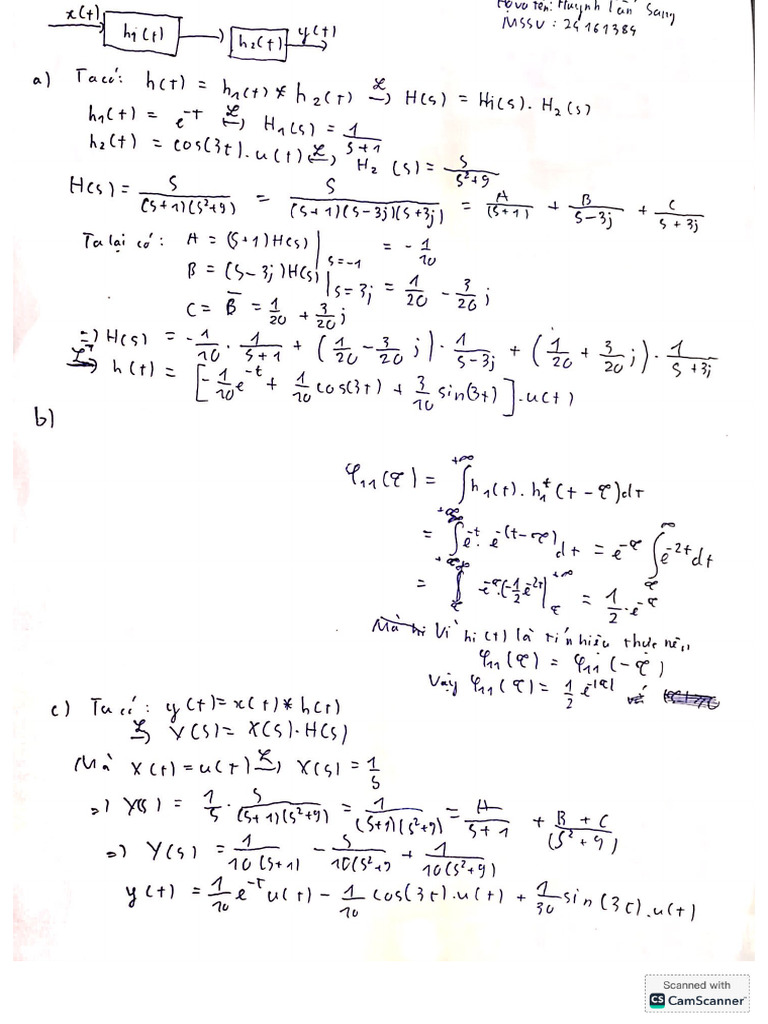 Họ và tên: Huỳnh Lân Sang
MSSV: 24161384
x(t) h₁(t) h₂(t) y(t)
a) Ta có: h(t) = h₁(t) * h₂(t) ℒ→ H(s) = H₁(s). H₂(s)
h₁(t) = e^-t ℒ↔ H₁(s) = 1/(s+1)
h₂(t) = cos(3t).u(t) ℒ↔ H₂(s) = s/(s²+9)
H(s) = s/((s+1)(s²+9)) = s/((s+1)(s-3j)(s+3j)) = A/(s+1) + B/(s-3j) + C/(s+3j)
Ta lại có: A = (s+1)H(s)|s=-1 = -1/10
B = (s-3j)H(s)|s=3j = 1/20 - 3/20 j
C = B̄ = 1/20 + 3/20 j
=> H(s) = -1/10 . 1/(s+1) + (1/20 - 3/20 j). 1/(s-3j) + (1/20 + 3/20 j). 1/(s+3j)
ℒ⁻¹→ h(t) = [-1/10 e^-t + 1/10 cos(3t) + 3/10 sin(3t)].u(t)
b)
φ₁₁(τ) = ∫ +∞ h₁(t). h₁*(t-τ)dt
= ∫ e^-t. e^-(t-τ) dt = e^-τ ∫ e^-2t dt
= e^-τ.(-1/2 e^-2t)| +∞ τ = 1/2 . e^-τ
Vì h₁(t) là tín hiệu thực nên
φ₁₁(τ) = φ₁₁(-τ)
Vậy φ₁₁(τ) = 1/2 e^-|τ|
c) Ta có: y(t) = x(t) * h(t)
ℒ→ Y(s) = X(s). H(s)
Mà x(t) = u(t) ℒ→ X(s) = 1/s
=> Y(s) = 1/s . s/((s+1)(s²+9)) = 1/((s+1)(s²+9)) = A/(s+1) + B + C/(s²+9)
=> Y(s) = 1/10(s+1) - s/10(s²+9 + 1/10(s²+9)
y(t) = 1/10 e^-t u(t) - 1/10 cos(3t).u(t) + 1/30 sin(3t).u(t)
Scanned with
CS CamScanner